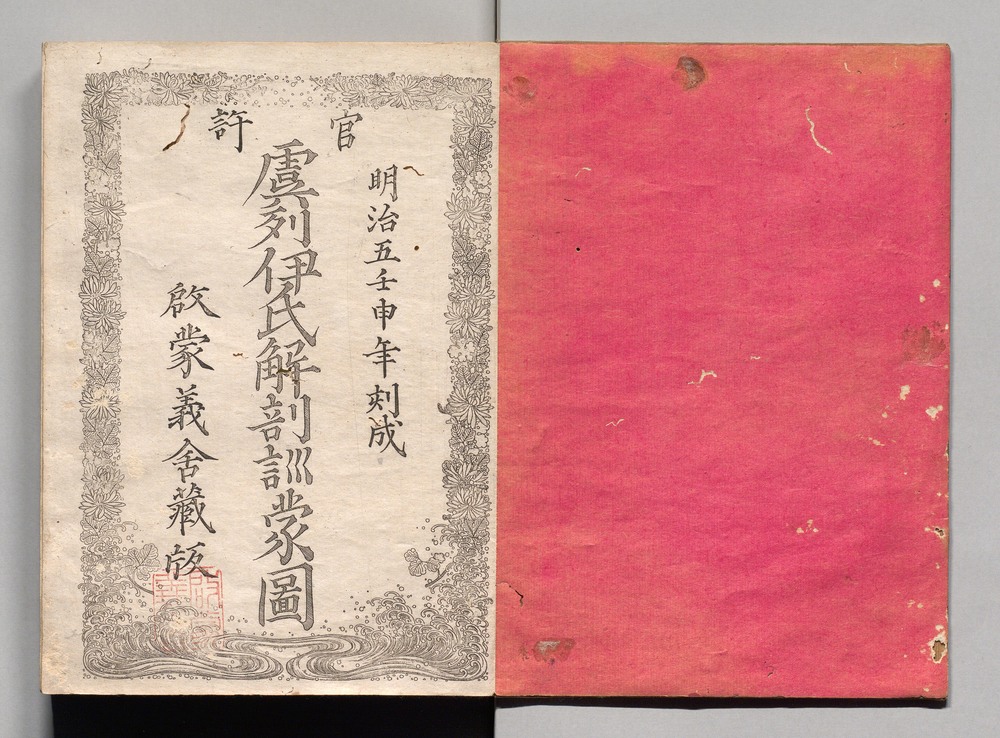 官許
明治五壬申年刻成
虞列伊氏解剖訓蒙圖
啟蒙義舍藏版